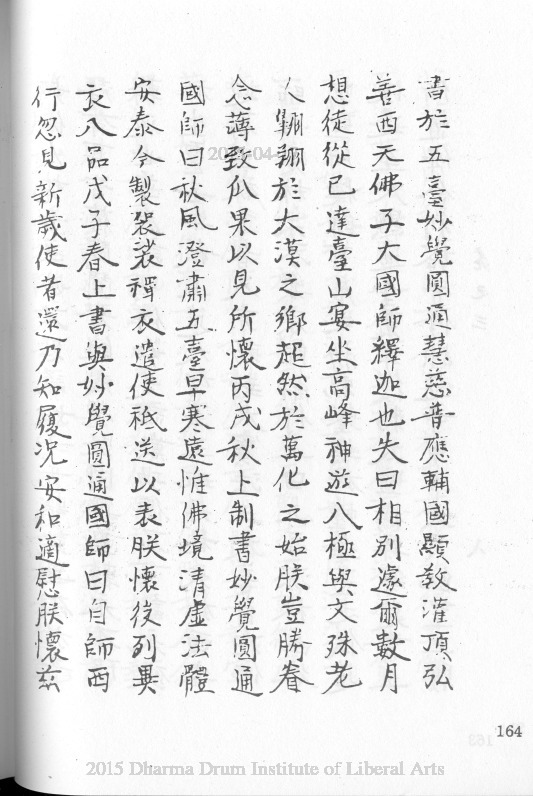 書於五臺妙覺圓通慧慈普應輔國顯教灌頂弘
善西天佛子大國師釋迦也失曰相別遽爾數月
想徒從已達臺山宴坐高峰神遊八極與文殊老
人翺翔於大漠之鄉超然於萬化之始朕豈勝眷
念薄致瓜果以見所懷丙戌秋上制書妙覺圓通
國師曰秋風澄肅五臺早寒遠惟佛境清虛法體
安泰今製袈裟禪衣遣使祗送以表朕懷後列異
衣八品戊子春上書與妙覺圓通國師曰自師西
行忽見新歲使者還乃知履况安和適慰朕懷茲
164
2015 Dharma Drum Institute of Liberal Arts